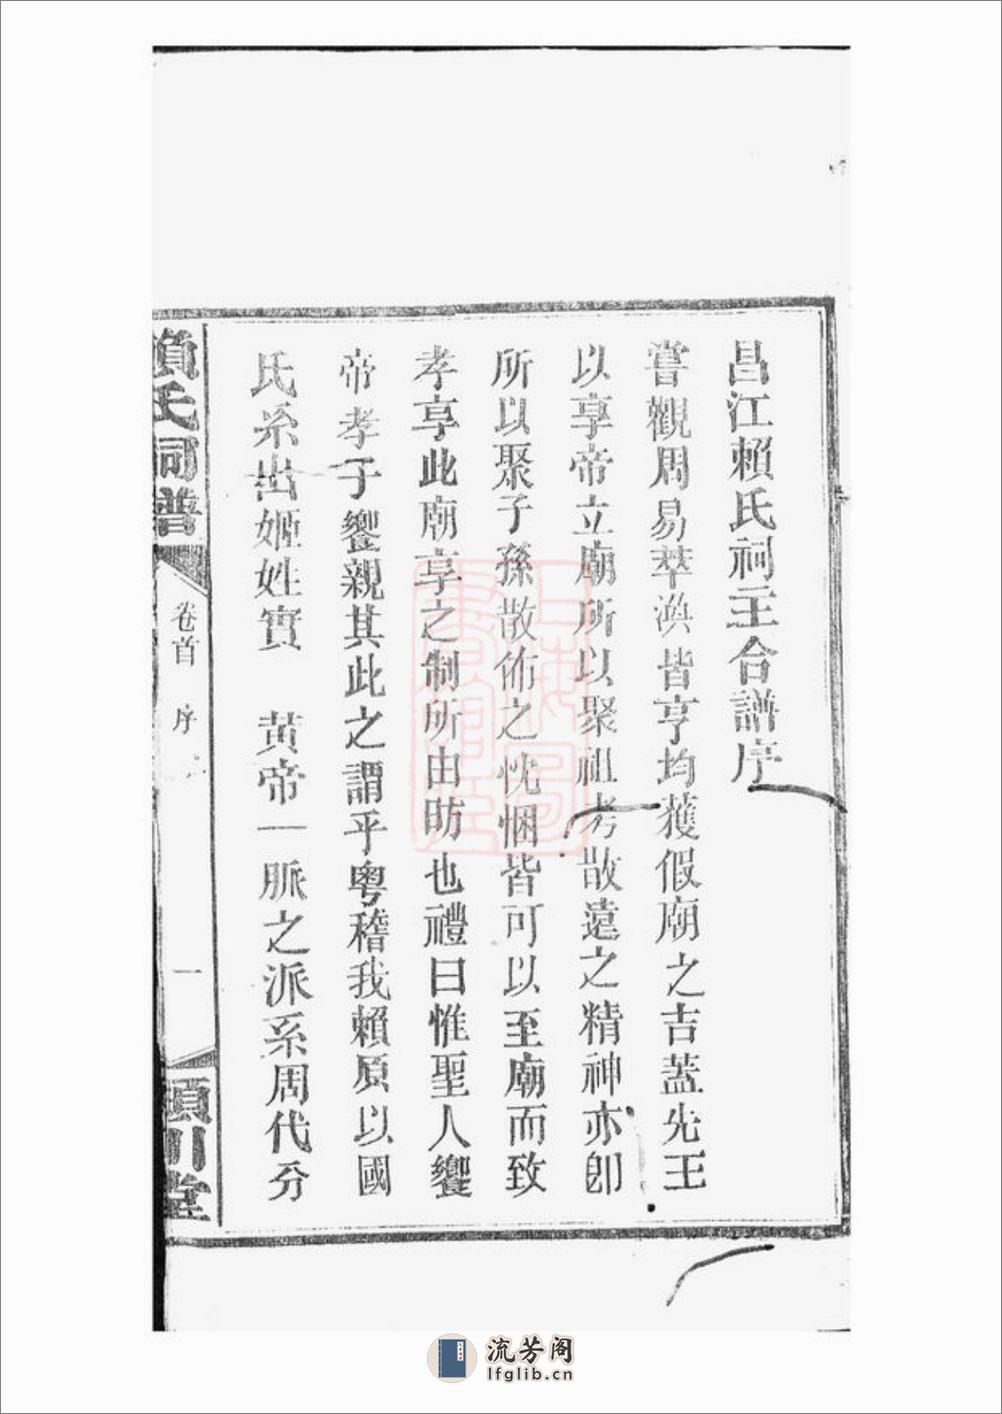 昌江賴氏祠主合譜序
嘗觀周易萃渙皆亨均獲假廟之吉蓋先王
以享帝立廟所以聚祖考散遠之精神亦卽
所以聚子孫散佈之忱悃皆可以至廟而致
孝享此廟享之制所由昉也禮曰惟聖人饗
帝孝子饗親其此之謂乎粵稽我賴原以國
氏系出姬姓實　黃帝一脈之派系周代分
賴氏祠譜
卷首
序
一
潁川堂
上海圖書館藏
流芳阁
lfglib.cn